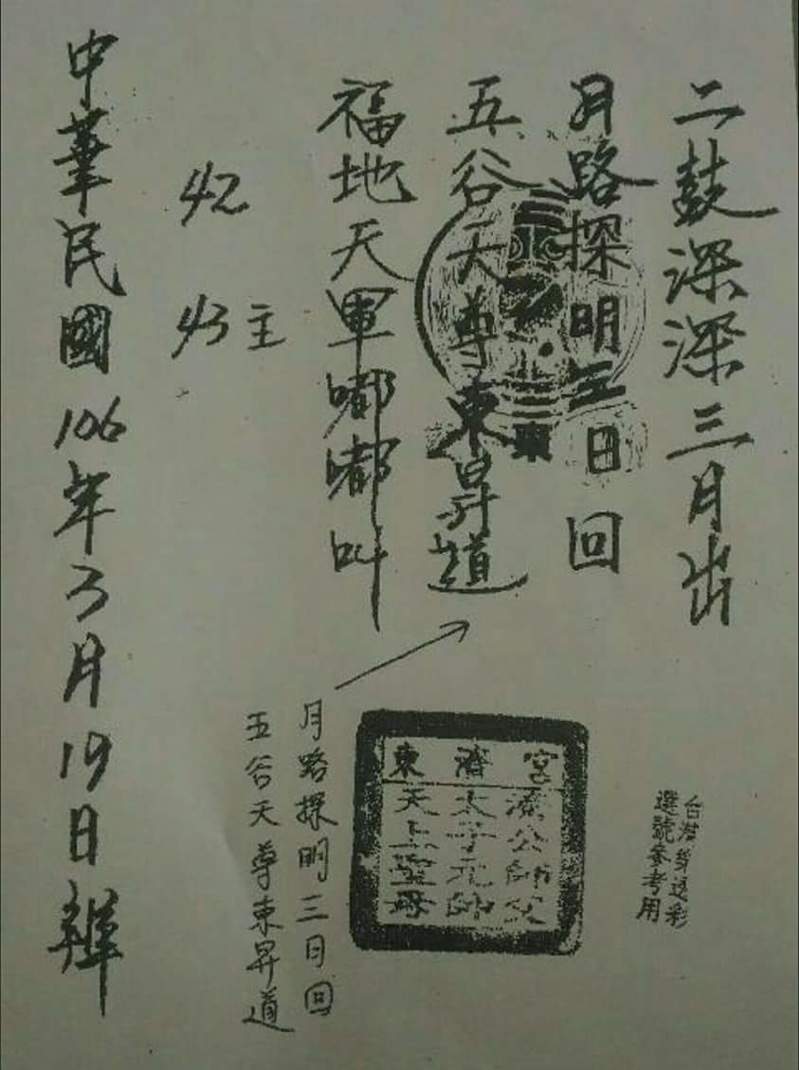 二鼓深深三月出
月路探明三日回
五谷天尊東昇道
福地天軍嘟嘟叫
42
43主
中華民國106年3月19日
月路探明三日回
五谷天尊東昇道
東濟宮
濟公師父
太子元帥
天上聖母
選號參考用